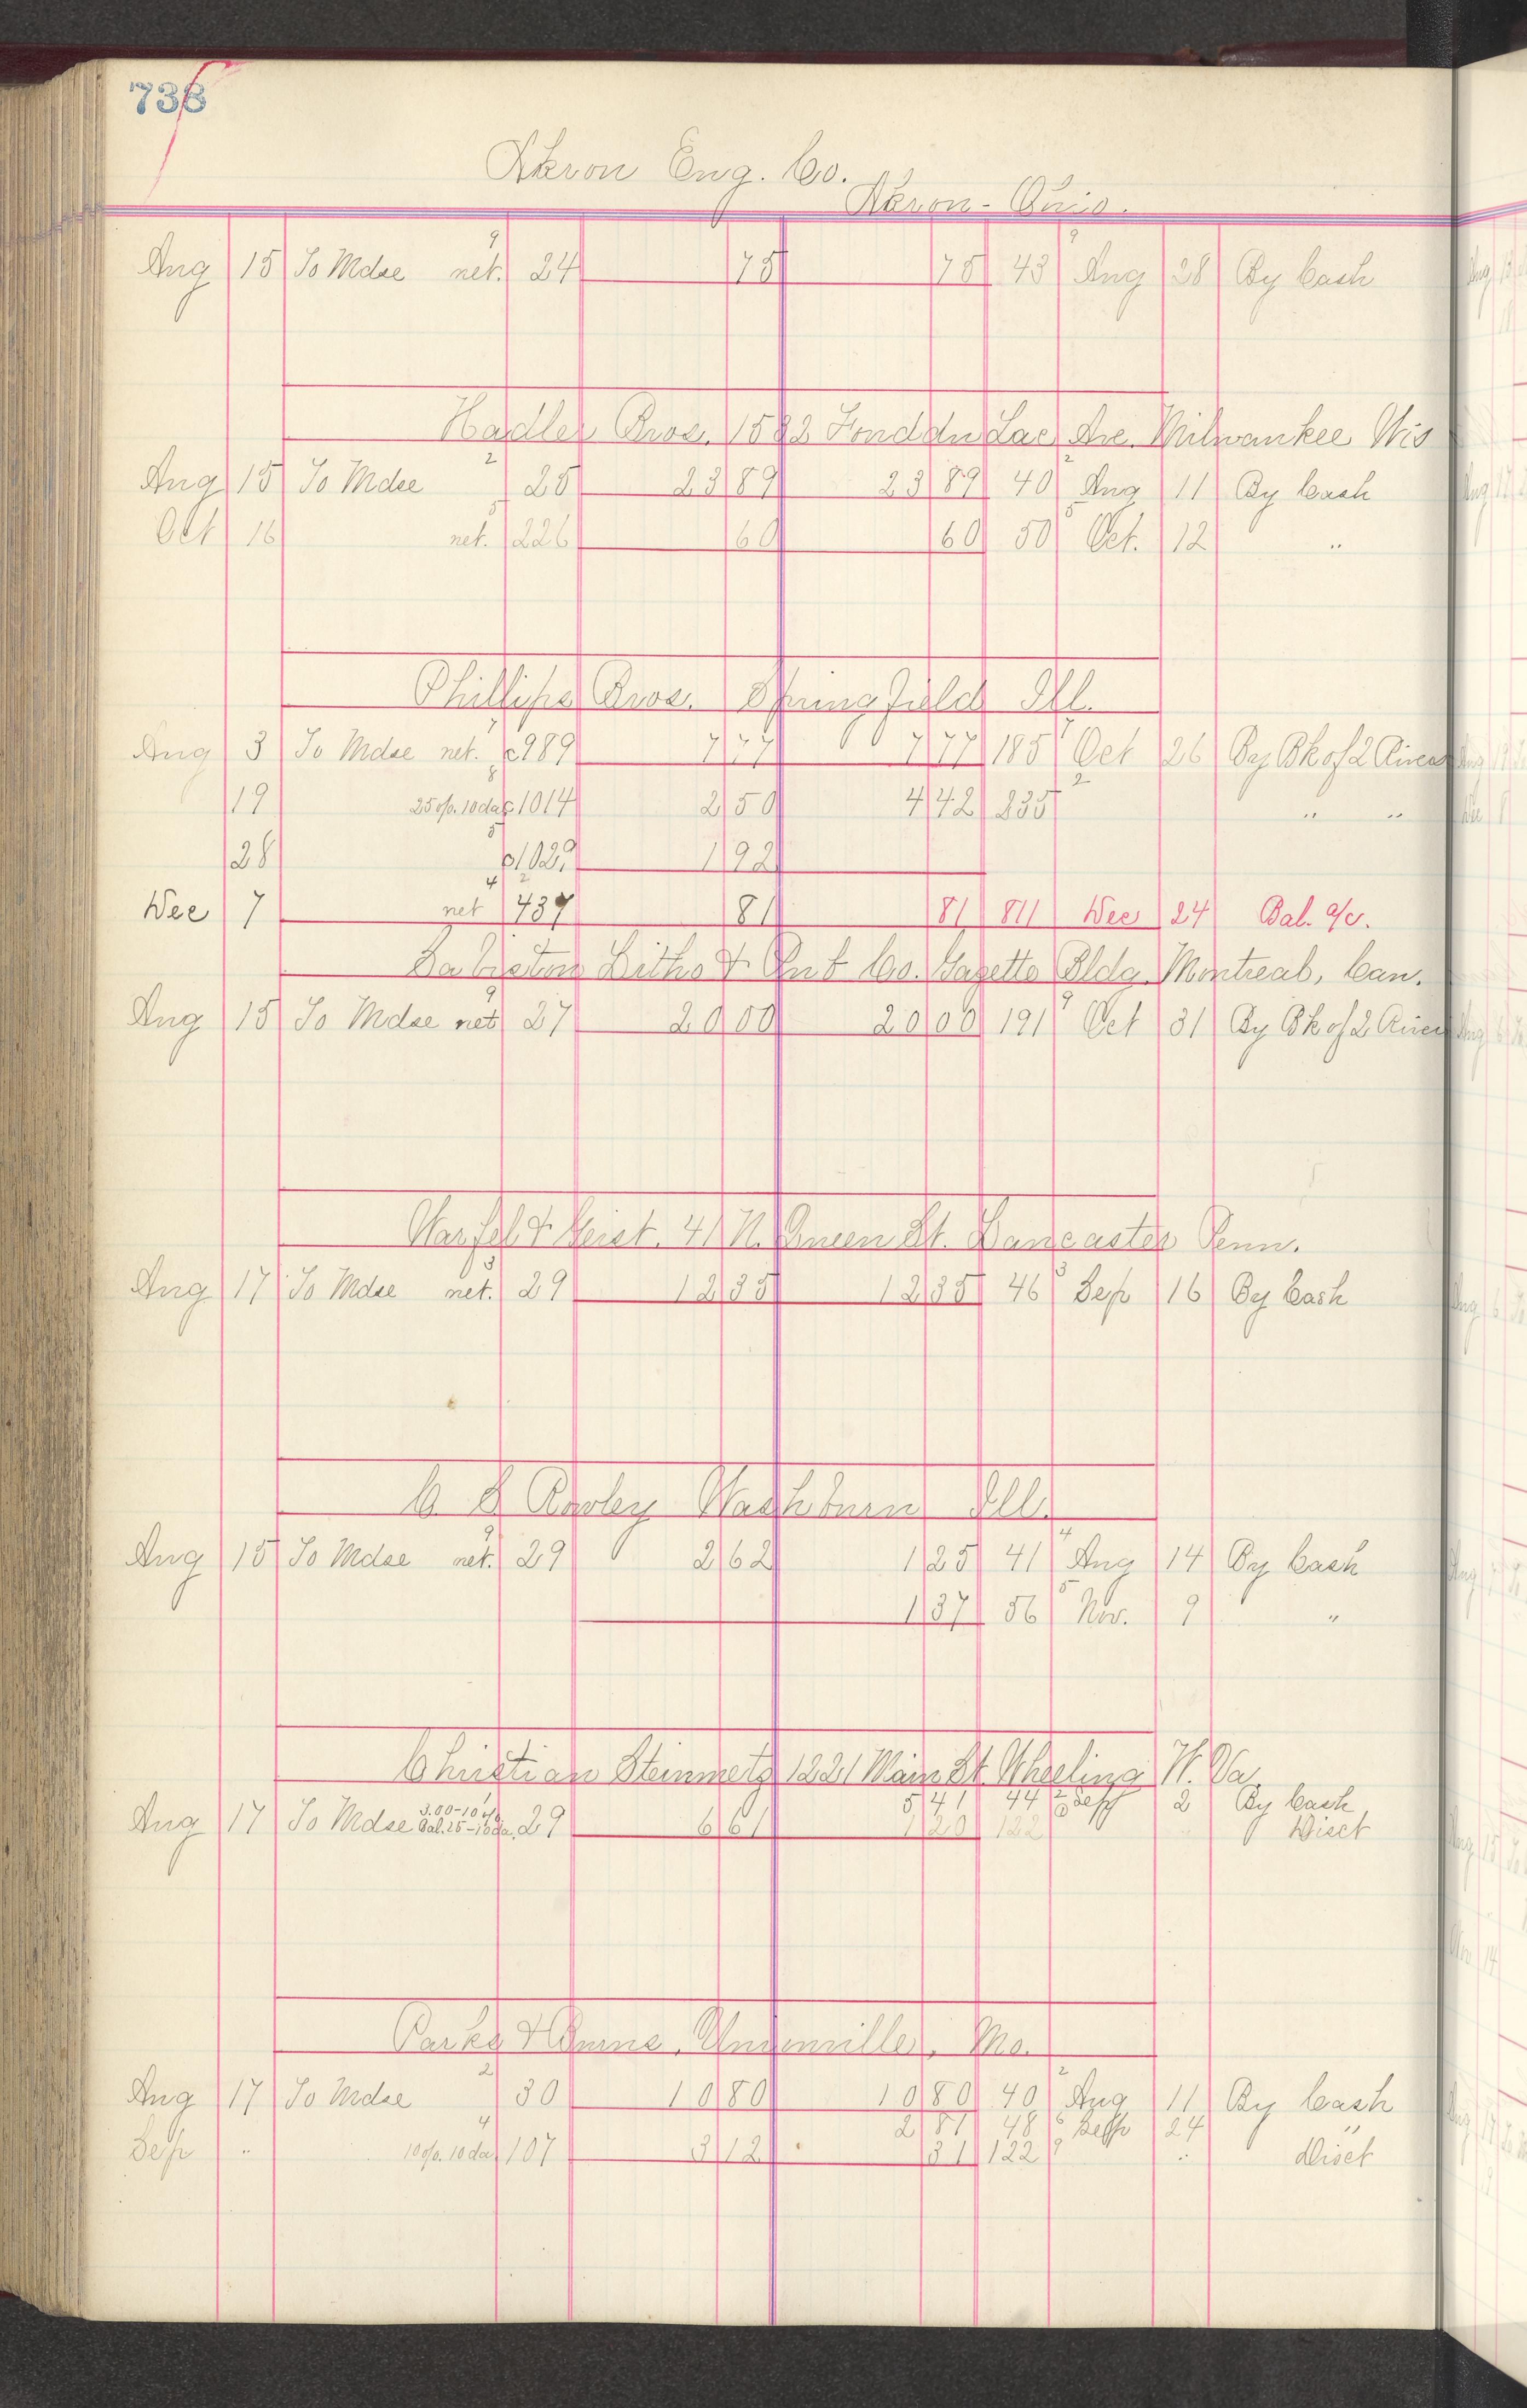 738
Akron Eng. Co.
Akron - Ohio.
Aug 15 To Mdse net. 9 24 75 75 43 9 Aug 28 By Cash
Hadler Bros. 1592 Fond du Lac Ave. Milwaukee Wis
Aug 15 To Mdse 2 25 23 89 23 89 40 2 Aug 11 By Cash
Oct 16 net. 5 226 60 60 50 5 Oct. 12 "
Phillips Bros. Springfield Ill.
Aug 3 To Mdse net. 7 c989 7 77 7 77 185 7 Oct 26 By Bk of 2 Rivers
19 25%. 10 da 8 c1014 2 50 4 42 235 2 " "
28 5 c1029 1 92
Dec 7 net 4 2 437 81 81 811 Dec 24 Bal. a/c.
Sabiston Litho & Pub Co. Gazette Bldg. Montreal, Can.
Aug 15 To Mdse net 9 27 20 00 20 00 191 9 Oct 31 By Bk of 2 Rivers
Warfel & Geist. 41 N. Queen St. Lancaster Penn.
Aug 17 To Mdse net. 3 29 12 35 12 35 46 3 Sep 16 By Cash
Washburn Ill.
Aug 15 To Mdse net. 9 29 2 62 1 25 41 4 Aug 14 By Cash
1 37 56 5 Nov. 9 "
Christian Steinmetz 1221 Main St. Wheeling W. Va.
5 41 44 2 Sep 2 By Cash
Aug 17 To Mdse 3.00-10% Bal. 25-10 da. 29 6 61 1 20 122 Disct
Parks & Unionville, Mo.
Aug 17 To Mdse 2 30 10 80 10 80 40 2 Aug 11 By Cash
2 81 48 6 Sep 24 "
Sep " 10%. 10 da 4 107 3 12 31 122 9 " Disct